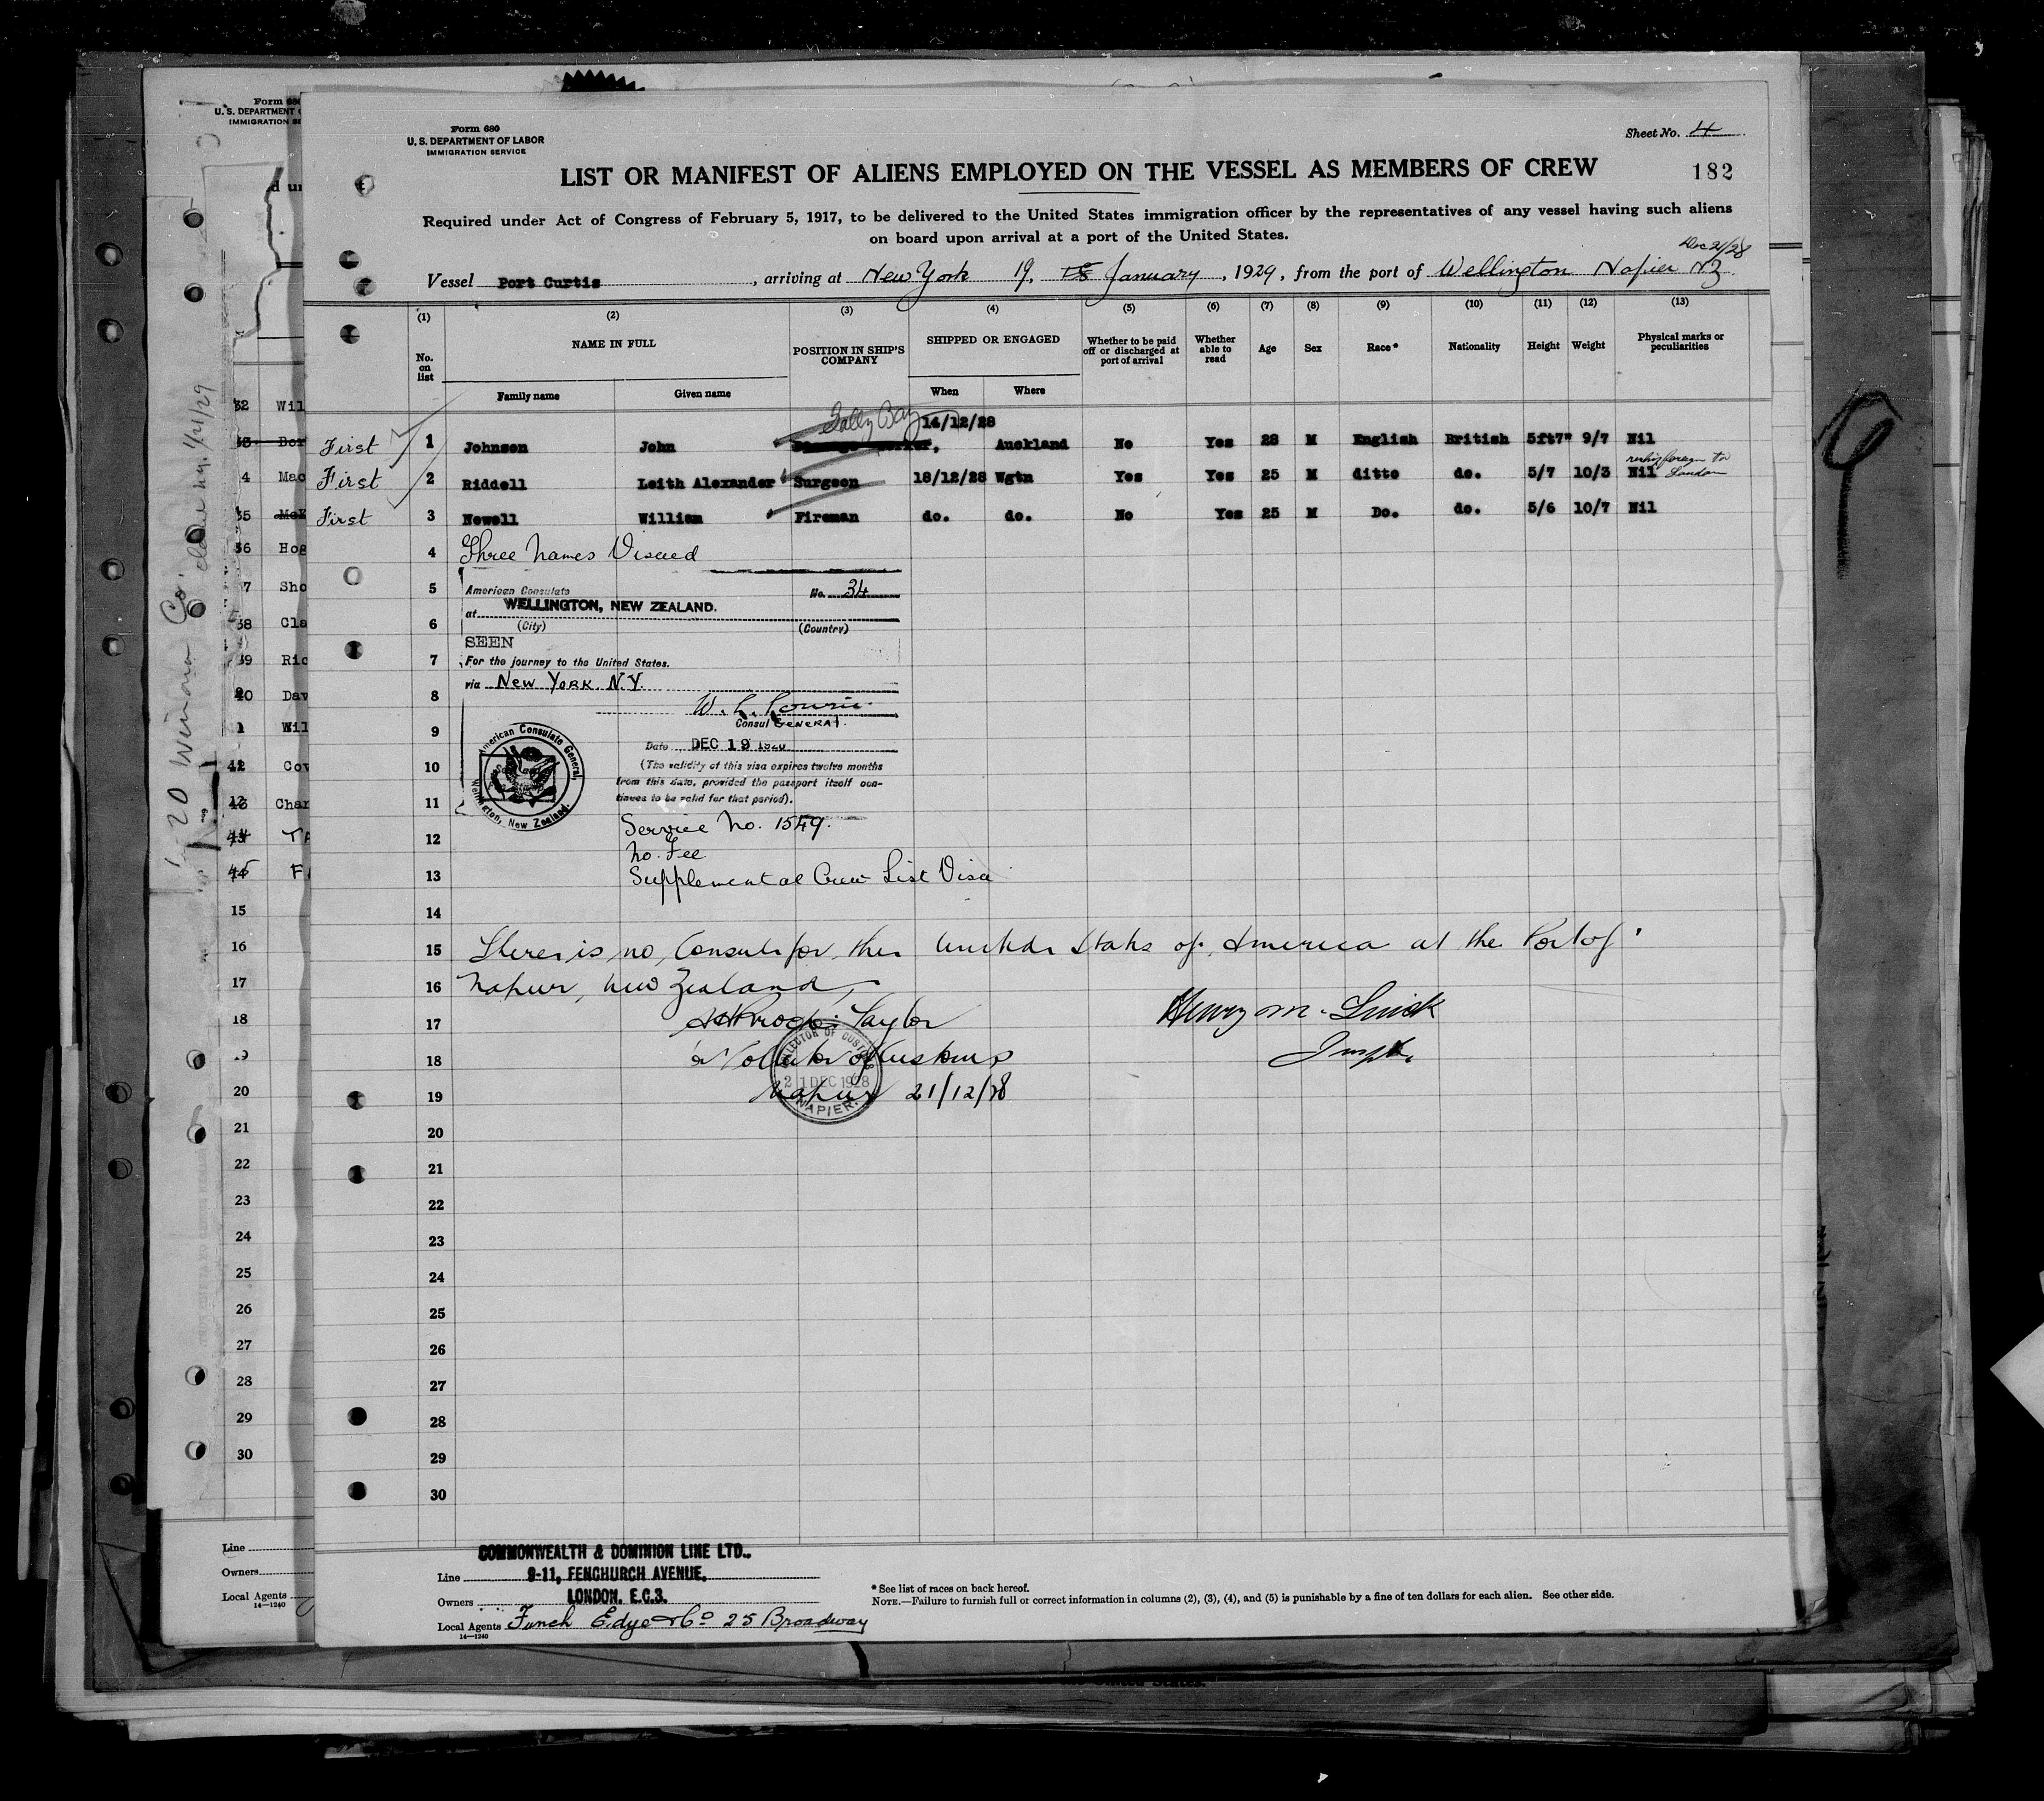 Form 680
U. S. DEPARTMENT OF LABOR
IMMIGRATION SERVICE
Sheet No. 4
LIST OR MANIFEST OF ALIENS EMPLOYED ON THE VESSEL AS MEMBERS OF CREW
182
Required under Act of Congress of February 5, 1917, to be delivered to the United States immigration officer by the representatives of any vessel having such aliens
on board upon arrival at a port of the United States.
Dec 21/28
Vessel Port Curtis, arriving at New York 19, January, 1929, from the port of Wellington Napier NZ.
(1) (2) (3) (4) (5) (6) (7) (8) (9) (10) (11) (12) (13)
No. on list NAME IN FULL POSITION IN SHIP'S COMPANY SHIPPED OR ENGAGED Whether to be paid off or discharged at port of arrival Whether able to read Age Sex Race* Nationality Height Weight Physical marks or peculiarities
Family name Given name When Where
First 1 Johnson John Gally Boy 14/12/28 Auckland No Yes 28 M English British 5ft7" 9/7 Nil
First 2 Riddell Leith Alexander Surgeon 18/12/28 Wgtn Yes Yes 25 M ditto do. 5/7 10/3 Nil London
First 3 Newell William Fireman do. do. No Yes 25 M Do. do. 5/6 10/7 Nil
4 Three Names Visaed
5 American Consulate No. 34
at WELLINGTON, NEW ZEALAND.
6 (City) (Country)
SEEN
7 For the journey to the United States.
via NEW YORK. N.Y.
8
Consul GENERAL.
9
Date DEC 19 1928
10 (The validity of this visa expires twelve months
from this date, provided the passport itself con-
11 tinues to be valid for that period).
American Consulate General, Wellington, New Zealand.
Service No. 1549.
12
No. Fee
13 Supplemental Crew List Visa
14
15 There is no Consul for the United States of America at the Port of
16 Napier, New Zealand,
17 Taylor
Henry M.
18 Collector of Customs
Inspt.
COLLECTOR OF CUSTOMS
21 DEC 1928
NAPIER.
19 Napier 21/12/28
20
21
22
23
24
25
26
27
28
29
30
COMMONWEALTH & DOMINION LINE LTD.,
Line 9-11, FENCHURCH AVENUE,
Owners LONDON. E.C.3.
Local Agents Funch Edye & Co 25 Broadway
14—1240
* See list of races on back hereof.
NOTE.—Failure to furnish full or correct information in columns (2), (3), (4), and (5) is punishable by a fine of ten dollars for each alien. See other side.
Form 680
U. S. DEPARTMENT
IMMIGRATION SE
32 Wil
Bor
4 Mac
35 McK
36 Hog
37 Sho
38 Cla
39 Ric
40 Dav
1 Wil
42 Cov
Char
15
16
17
18
19
20
21
22
23
24
25
26
27
28
29
30
Line
Owners
Local Agents
14—1240